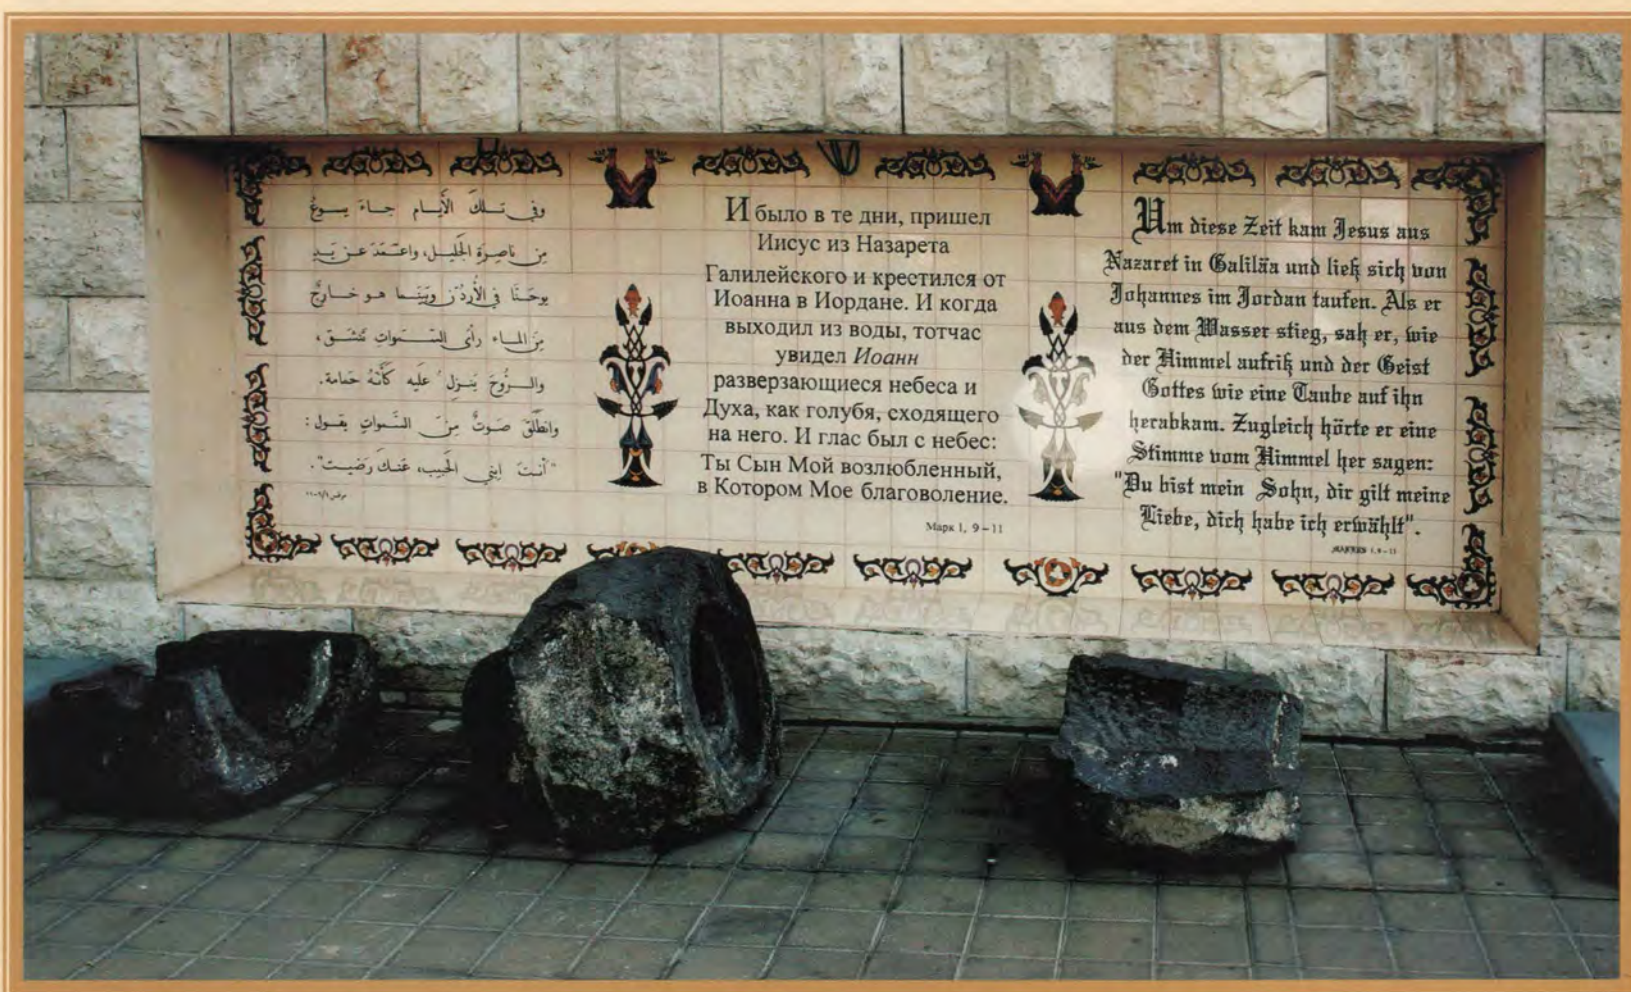 وفي تلك الأيام جاءَ يسوعُ
مِن ناصِرَة الجَليل، واعتَمَدَ عَن يَدِ
يوحَنَّا في الأُردُنّ وبَينَما هو خارِجٌ
مِنَ الماء رأى السَّمَواتِ تَنشَقّ،
والرُّوحَ يَنزِلُ عَلَيه كَأَنَّهُ حَمامة.
وانطَلَقَ صَوتٌ مِنَ السَّمَواتِ يقول:
"أنتَ ابني الحَبيب، عَنكَ رَضيت".
مرقس ١/٩-١١
И было в те дни, пришел
Иисус из Назарета
Галилейского и крестился от
Иоанна в Иордане. И когда
выходил из воды, тотчас
увидел Иоанн
разверзающиеся небеса и
Духа, как голубя, сходящего
на него. И глас был с небес:
Ты Сын Мой возлюбленный,
в Котором Мое благоволение.
Марк 1, 9–11
Um diese Zeit kam Jesus aus
Nazaret in Galiläa und ließ sich von
Johannes im Jordan taufen. Als er
aus dem Wasser stieg, sah er, wie
der Himmel aufriß und der Geist
Gottes wie eine Taube auf ihn
herabkam. Zugleich hörte er eine
Stimme vom Himmel her sagen:
"Du bist mein Sohn, dir gilt meine
Liebe, dich habe ich erwählt".
MARKUS 1,9-11